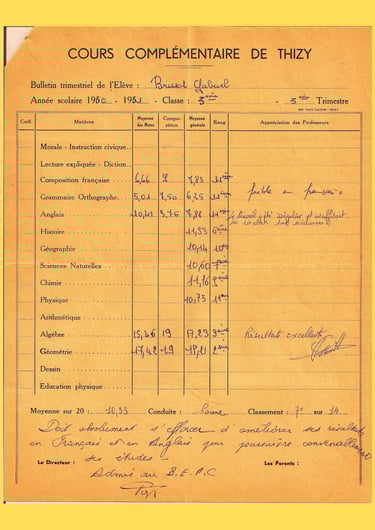 COURS COMPLÉMENTAIRE DE THIZY
Bulletin trimestriel de l'Elève : Brissot Gabriel
Année scolaire 1950 - 1951 - Classe : 3ème - 3ème Trimestre
Coef. Matières Moyenne des Notes Compo- sition Moyenne générale Rang Appréciation des Professeurs
Morale - Instruction civique..
Lecture expliquée - Diction..
Composition française 6,66 9 7,83 11ème
Grammaire Orthographe 5,01 7,50 6,25 11ème faible en français
Anglais 10,41 3,75 11ème Le travail a été irrégulier et insuffisant
Histoire 11,33 6ème
Géographie 10,14 10ème
Sciences Naturelles 10,60 7ème
Chimie
Physique 10,75 11ème
Arithmétique
Algèbre 15,46 19 17,23 3ème Résultat excellent
Géométrie 17,42 19 18,21 2ème
Dessin
Education physique
Moyenne sur 20 : 10,93 Conduite : Bonne Classement : 7e sur 14
Doit absolument s'efforcer d'améliorer ses résultats
en Français et en Anglais pour poursuivre convenablement
Le Directeur : ses études - Les Parents :
Admis au B.E.P.C